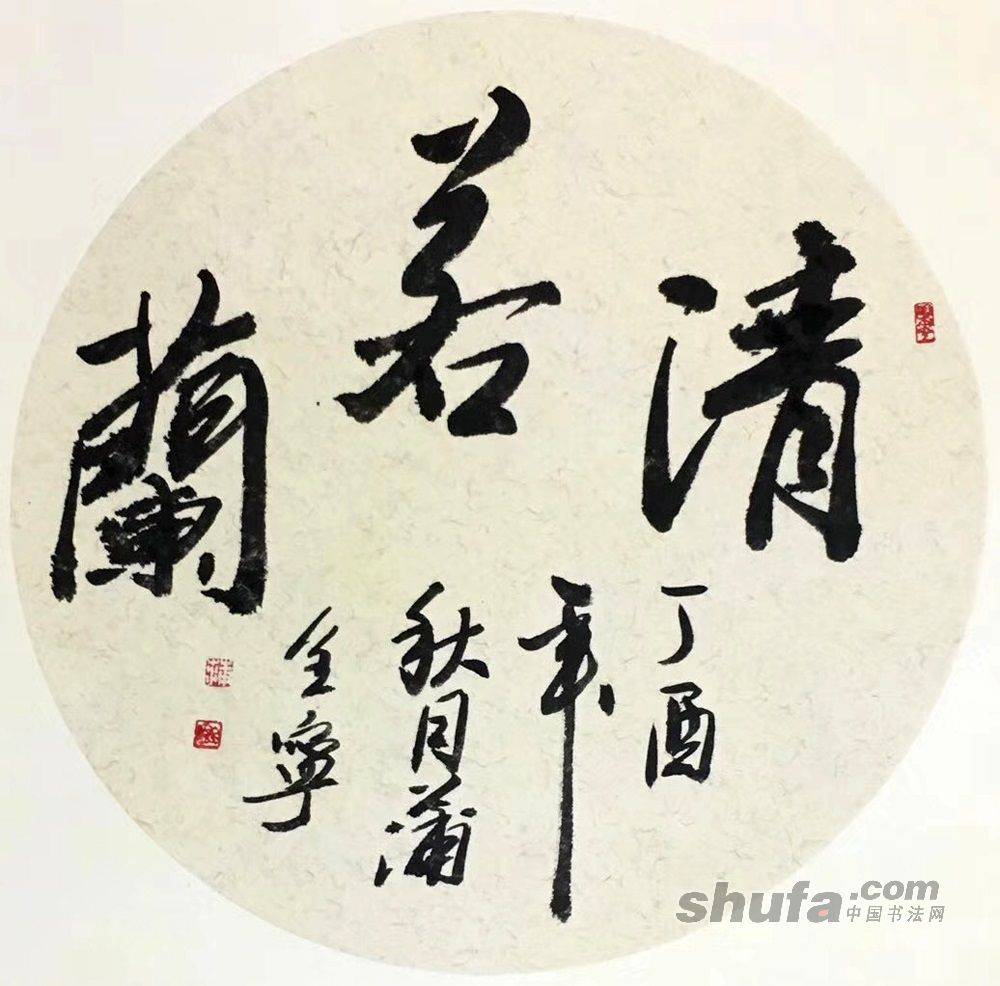 清若蘭
丁酉
年
秋月蒲
全寧
shufa.com
中国书法网